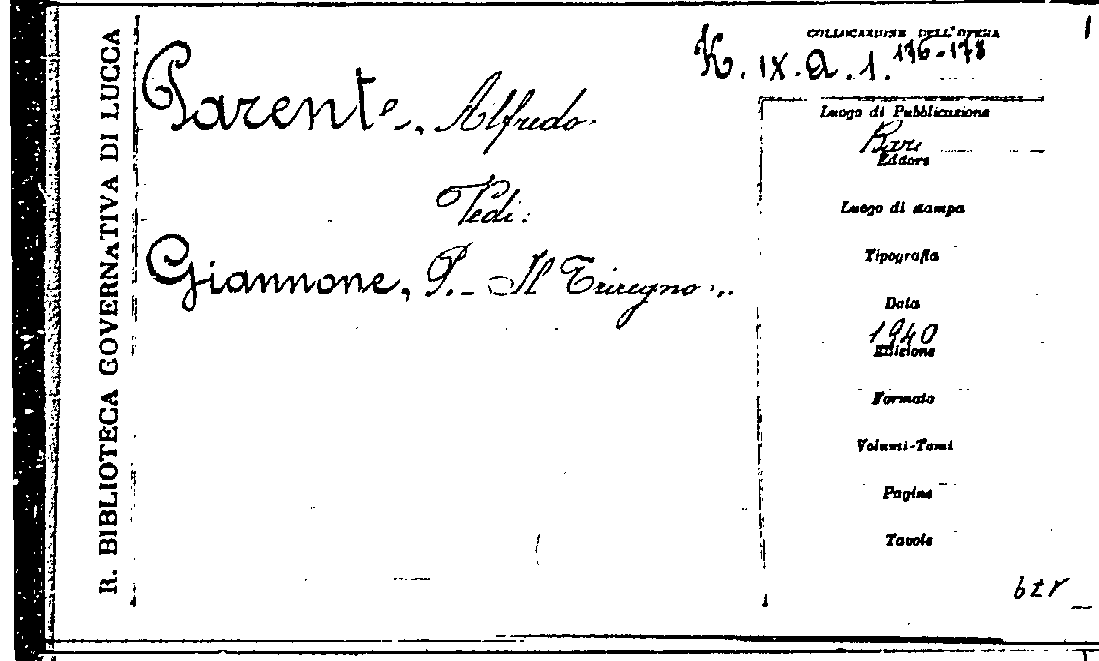 R. BIBLIOTECA GOVERNATIVA DI LUCCA
COLLOCAZIONE DELL'OPERA
K. IX. a. 1. 176-178
Parente, Alfredo.
Vedi:
Giannone, P. - Il Triregno...
Luogo di Pubblicazione
Bari
Editore
Luogo di stampa
Tipografia
Data
1940
Edizione
Formato
Volumi-Tomi
Pagine
Tavole